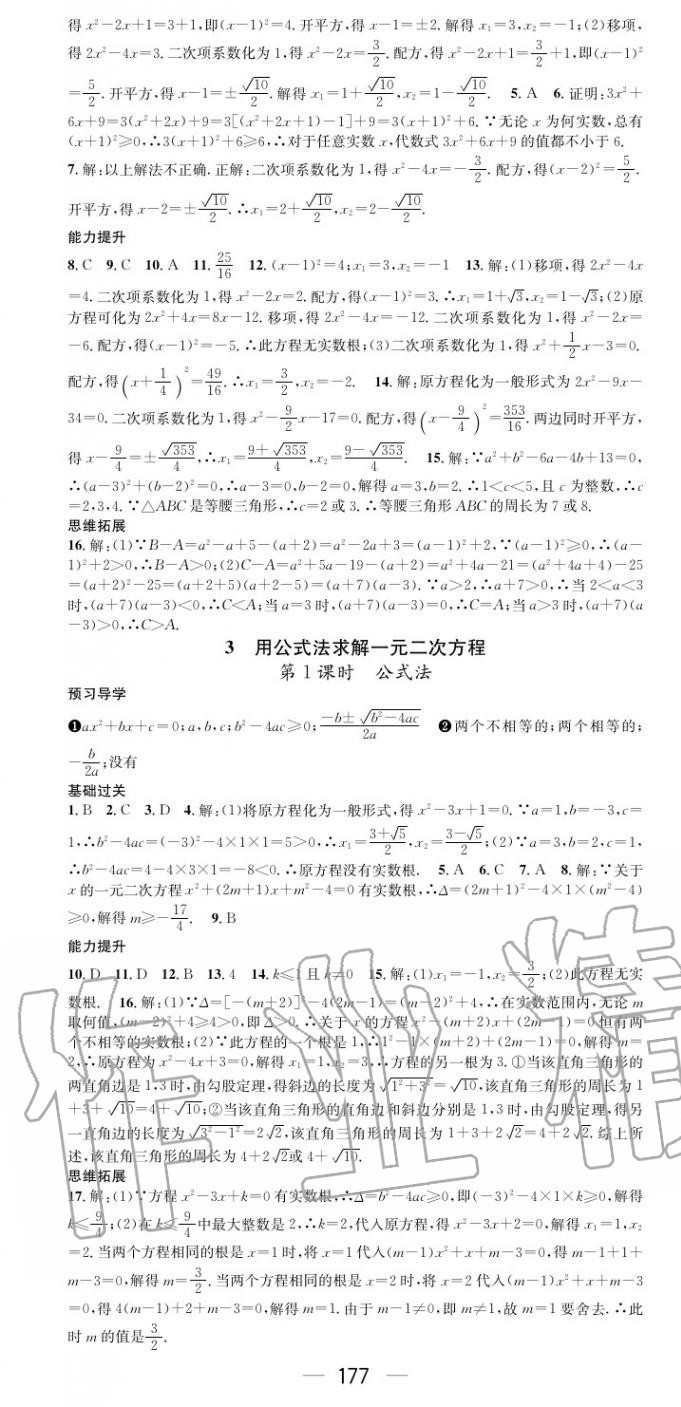 得x²-2x+1=3+1,即(x-1)²=4.开平方,得x-1=±2.解得x₁=3,x₂=-1;(2)移项,
得2x²-4x=3.二次项系数化为1,得x²-2x=3/2.配方,得x²-2x+1=3/2+1,即(x-1)²
=5/2.开平方,得x-1=±√10/2.解得x₁=1+√10/2,x₂=1-√10/2. 5.A 6.证明:3x²+
6x+9=3(x²+2x)+9=3[(x²+2x+1)-1]+9=3(x+1)²+6.∵无论x为何实数,总有
(x+1)²≥0,∴3(x+1)²+6≥6,∴对于任意实数x,代数式3x²+6x+9的值都不小于6.
7.解:以上解法不正确.正解:二次项系数化为1,得x²-4x=-3/2.配方,得(x-2)²=5/2.
开平方,得x-2=±√10/2.∴x₁=2+√10/2,x₂=2-√10/2.
能力提升
8.C 9.C 10.A 11.25/16 12.(x-1)²=4;x₁=3,x₂=-1 13.解:(1)移项,得2x²-4x
=4.二次项系数化为1,得x²-2x=2.配方,得(x-1)²=3.∴x₁=1+√3,x₂=1-√3;(2)原
方程可化为2x²+4x=8x-12.移项,得2x²-4x=-12.二次项系数化为1,得x²-2x=
-6.配方,得(x-1)²=-5.∴此方程无实数根;(3)二次项系数化为1,得x²+1/2x-3=0.
配方,得(x+1/4)²=49/16.∴x₁=3/2,x₂=-2. 14.解:原方程化为一般形式为2x²-9x-
34=0.二次项系数化为1,得x²-9/2x-17=0.配方,得(x-9/4)²=353/16.两边同时开平方,
得x-9/4=±√353/4,∴x₁=(9+√353)/4,x₂=(9-√353)/4. 15.解:∵a²+b²-6a-4b+13=0,
∴(a-3)²+(b-2)²=0,∴a-3=0,b-2=0,解得a=3,b=2.∴1<c<5,且c为整数,∴c
=2,3,4.∵△ABC是等腰三角形,∴c=2或3.∴等腰三角形ABC的周长为7或8.
思维拓展
16.解:(1)∵B-A=a²-a+5-(a+2)=a²-2a+3=(a-1)²+2,∵(a-1)²≥0,∴(a-
1)²+2>0,∴B-A>0;(2)C-A=a²+5a-19-(a+2)=a²+4a-21=(a²+4a+4)-25
=(a+2)²-25=(a+2+5)(a+2-5)=(a+7)(a-3).∵a>2,∴a+7>0,∴当2<a<3
时,(a+7)(a-3)<0,∴C<A;当a=3时,(a+7)(a-3)=0,∴C=A;当a>3时,(a+7)(a
-3)>0,∴C>A.
3 用公式法求解一元二次方程
第1课时 公式法
预习导学
❶ax²+bx+c=0;a,b,c;b²-4ac≥0;(-b±√(b²-4ac))/2a ❷两个不相等的;两个相等的;
-b/2a;没有
基础过关
1.B 2.C 3.D 4.解:(1)将原方程化为一般形式,得x²-3x+1=0.∵a=1,b=-3,c=
1,∴b²-4ac=(-3)²-4×1×1=5>0,∴x₁=(3+√5)/2,x₂=(3-√5)/2;(2)∵a=3,b=2,c=1,
∴b²-4ac=4-4×3×1=-8<0.∴原方程没有实数根. 5.A 6.C 7.A 8.解:∵关于
x的一元二次方程x²+(2m+1)x+m²-4=0有实数根,∴Δ=(2m+1)²-4×1×(m²-4)
≥0,解得m≥-17/4. 9.B
能力提升
10.D 11.D 12.B 13.4 14.k≤1且k≠0 15.解:(1)x₁=-1,x₂=3/2;(2)此方程无实
数根. 16.解:(1)∵Δ=[-(m+2)]²-4(2m-1)=(m-2)²+4,∴在实数范围内,无论m
取何值,(m-2)²+4≥4>0,即Δ>0.∴关于x的方程x²-(m+2)x+(2m-1)=0恒有两
个不相等的实数根;(2)∵此方程的一个根是1,∴1²-1×(m+2)+(2m-1)=0,解得m=
2,∴原方程为x²-4x+3=0,解得x₁=1,x₂=3,∴方程的另一根为3.①当该直角三角形的
两直角边是1,3时,由勾股定理,得斜边的长度为√(1²+3²)=√10,该直角三角形的周长为1
+3+√10=4+√10;②当该直角三角形的直角边和斜边分别是1,3时,由勾股定理,得另
一直角边的长度为√(3²-1²)=2√2,该直角三角形的周长为1+3+2√2=4+2√2.综上所
述,该直角三角形的周长为4+2√2或4+√10.
思维拓展
17.解:(1)∵方程x²-3x+k=0有实数根,∴Δ=b²-4ac≥0,即(-3)²-4×1×k≥0,解得
k≤9/4;(2)在k≤9/4中最大整数是2,∴k=2,代入原方程,得x²-3x+2=0,解得x₁=1,x₂
=2.当两个方程相同的根是x=1时,将x=1代入(m-1)x²+x+m-3=0,得m-1+1+
m-3=0,解得m=3/2.当两个方程相同的根是x=2时,将x=2代入(m-1)x²+x+m-3
=0,得4(m-1)+2+m-3=0,解得m=1.由于m-1≠0,即m≠1,故m=1要舍去.∴此
时m的值是3/2.
— 177 —
作业精